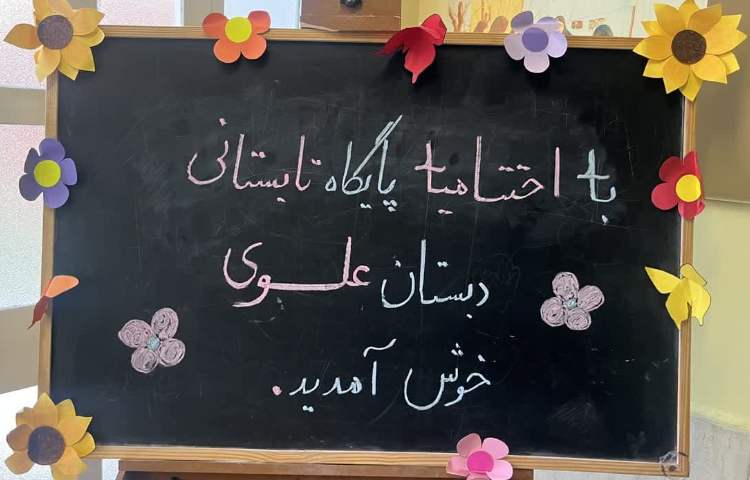 به اختتامیه پایگاه تابستانی
دبستان علوی
خوش آمدید.